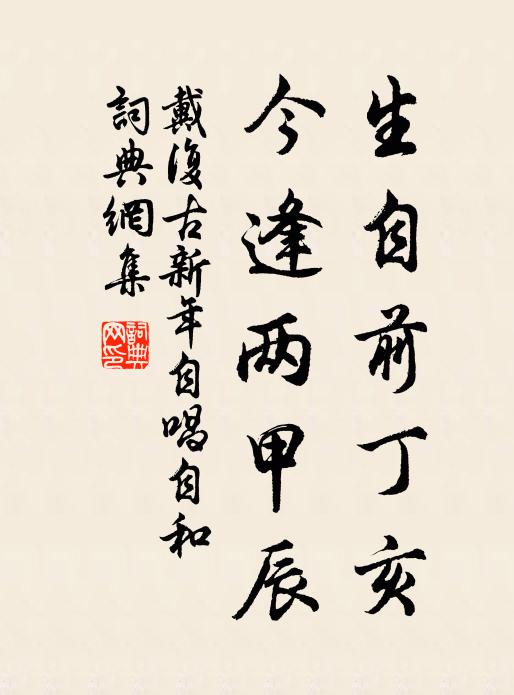 生自前丁亥
今逢两甲辰
戴復古新年自唱自和
詞典網集
詞典网印